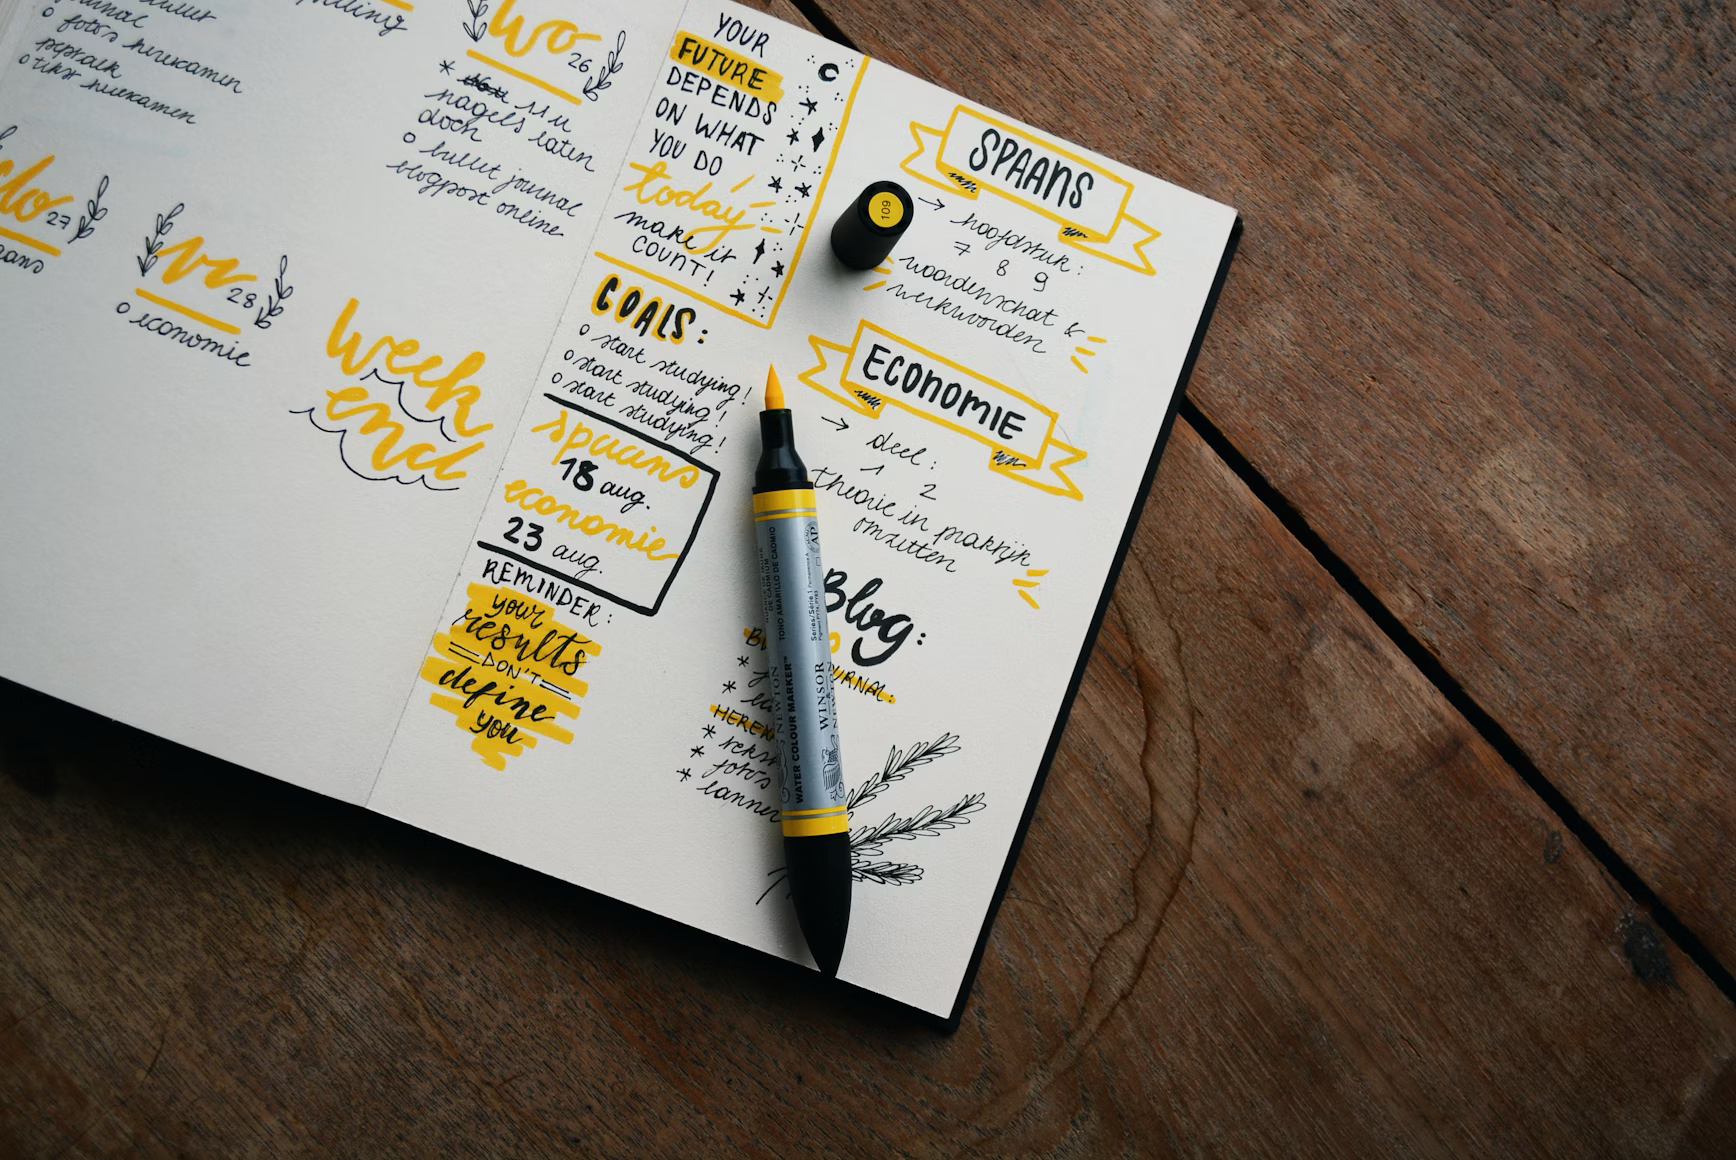 o fotos herexamen
peptalk
o tekst herexamen
wo
26
* 11 u
nagels laten
doen
o bullet journal
blogpost online
do
27
vr
28
o economie
week
end
YOUR
FUTURE
DEPENDS
ON WHAT
YOU DO
today
make it
COUNT!
GOALS:
o start studying!
o start studying!
o start studying!
spaans
18 aug.
economie
23 aug.
REMINDER:
your
results
DON'T
define
you
SPAANS
→ hoofdstuk:
7 8 9
woordenschat &
werkwoorden
ECONOMIE
→ deel:
1 2
theorie in praktijk
omzetten
Blog:
URNAL:
HEREX
*
*
* tekst
* fotos
* banner
109
WATER COLOUR MARKER™
WINSOR
NEWTON
Series/Série 1
AP
TONO AMARILLO DE CADMIO